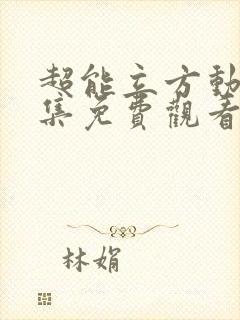 超能立方動
集免費觀看
林娟